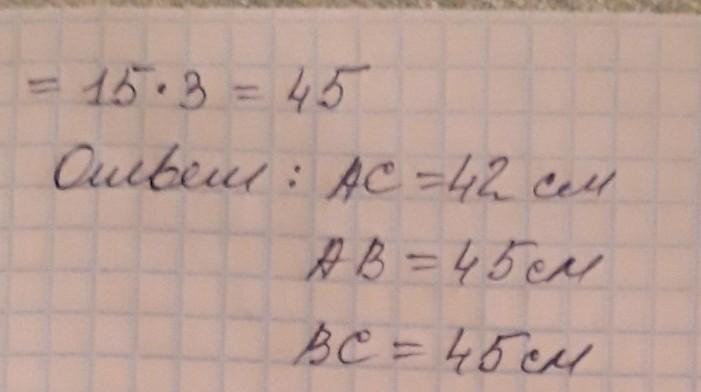 = 15·3 = 45
Ответ: AC = 42 см
AB = 45 см
BC = 45 см